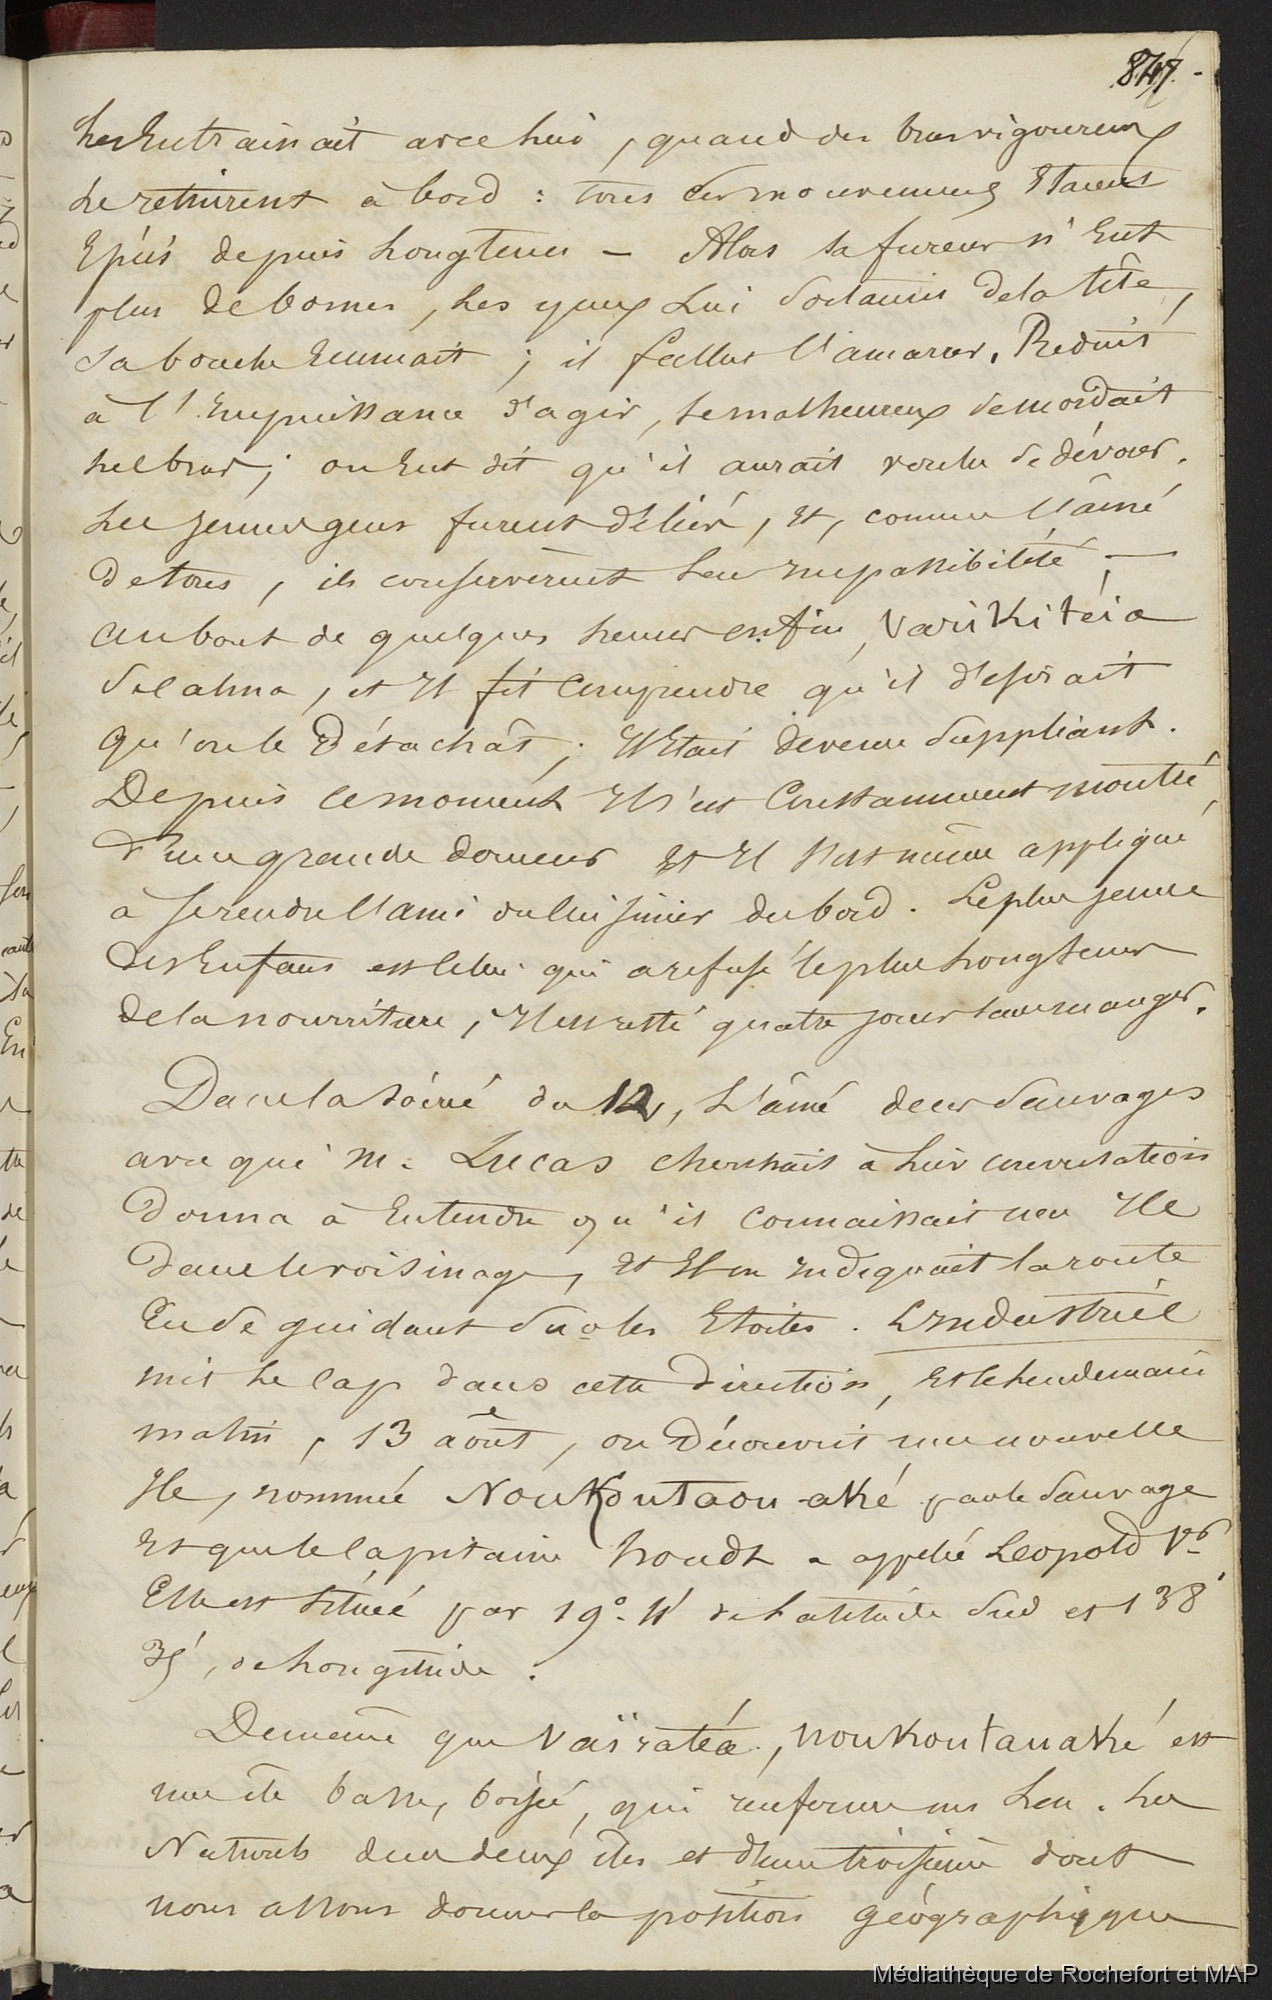 847.
les Entrainait avec lui, quand des bras vigoureux
le retinrent à bord : tous ses mouvemens Etaient
Epiés depuis longtems – Alors sa fureur n'Eut
plus de bornes, les yeux Lui sortaient de la tête,
sa bouche Ecumait ; il fallut l'amarrer. Reduit
à l'Impuissance d'agir, le malheureux se mordait
les bras ; on Eut dit qu'il aurait voulu se dévorer.
Les jeunes gens furent déliés, et, comme l'aîné
de tous, ils conservèrent leur impassibilité ; —
au bout de quelques heures enfin, Vaïrikitéia
se calma, et Il fit comprendre qu'il désirait
qu'on le Détachât ; Il Etait devenu suppliant.
Depuis ce moment Il s'est Constamment montré
d'une grande douceur Et Il s'est même appliqué
à se rendre l'ami du cuisinier du bord. Le plus jeune
des Enfans est celui qui a refusé le plus longtems
de la nourriture, Il est resté quatre jours sans manger.
Dans la soirée du 12, L'aîné de ces Sauvages
avec qui M. Lucas cherchait à lier conversation
donna à Entendre qu'il connaissait une Ile
dans le voisinage, et Il en indiquait la route
En se guidant sur les Etoiles. L'Industriel
mit le Cap dans cette direction, Et le lendemain
matin, 13 août, on Découvrit une nouvelle
Ile, nommée Noukoutaou-aké par le Sauvage
Et que le Capitaine a appelé Leopold 1er
Elle est située par 19°. 11' de Latitude Sud et 138°
35', de longitude.
De même que Vaïratéa, Noukoutauaké est
une île basse, boisée, qui renferme un Lac. Les
Naturels de ces deux îles et d'une troisième dont
nous allons donner la position géographique
Médiathèque de Rochefort et MAP